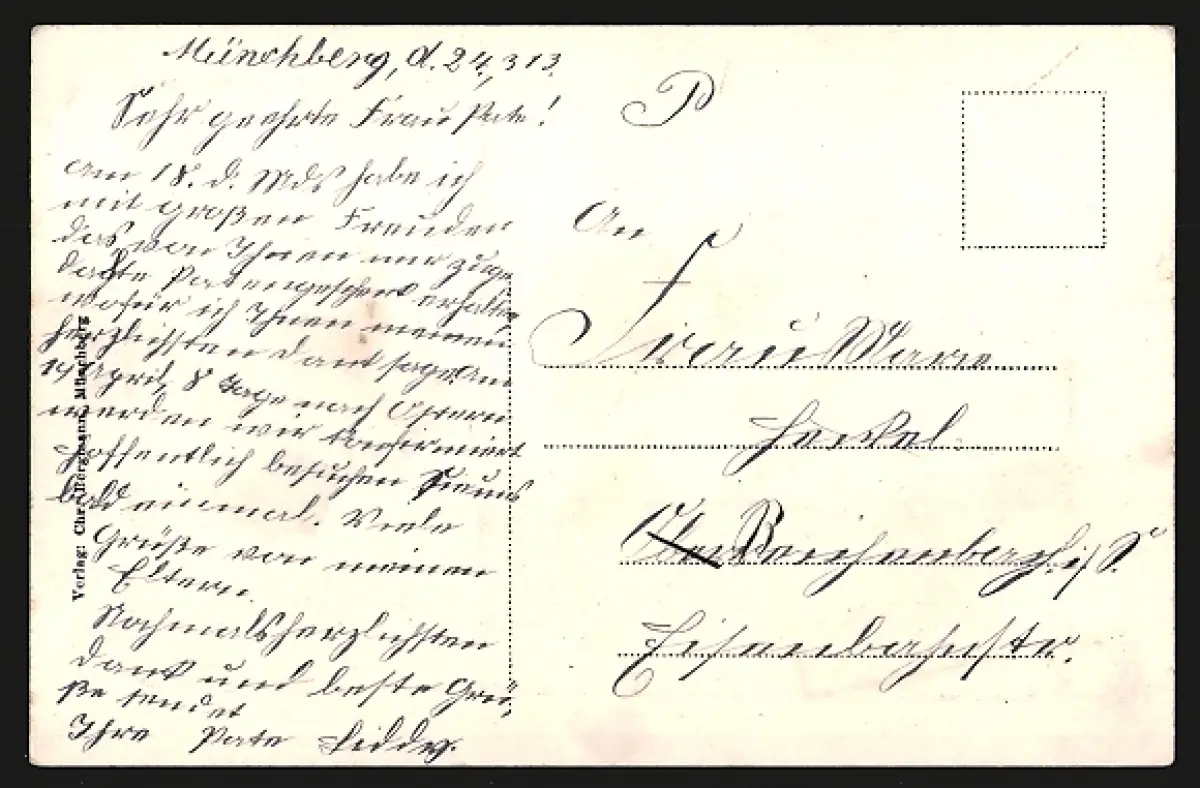 Münchberg, d. 24., 3 13.
Sehr geehrte Frau Pate!
Am 18. d. Mds habe ich
mit großen Freuden
das von Ihnen mir zuge
dachte Patengeschenk erhalten,
wofür ich Ihnen meinen
herzlichsten Dank sage. Am
14 April, 8 Tage nach Ostern
werden wir konfirmiert
Hoffentlich besuchen Sie uns
bald einmal. Viele
Grüße von meinen
Eltern.
Nochmals herzlichsten
Dank und beste Grü,
ße sendet
Ihre Pate
Verlag: Chr. Bergmann, Münchberg
P
An
Frau Marie
Henkel
Reichenbach i/ S.
Eisenbahnstr.